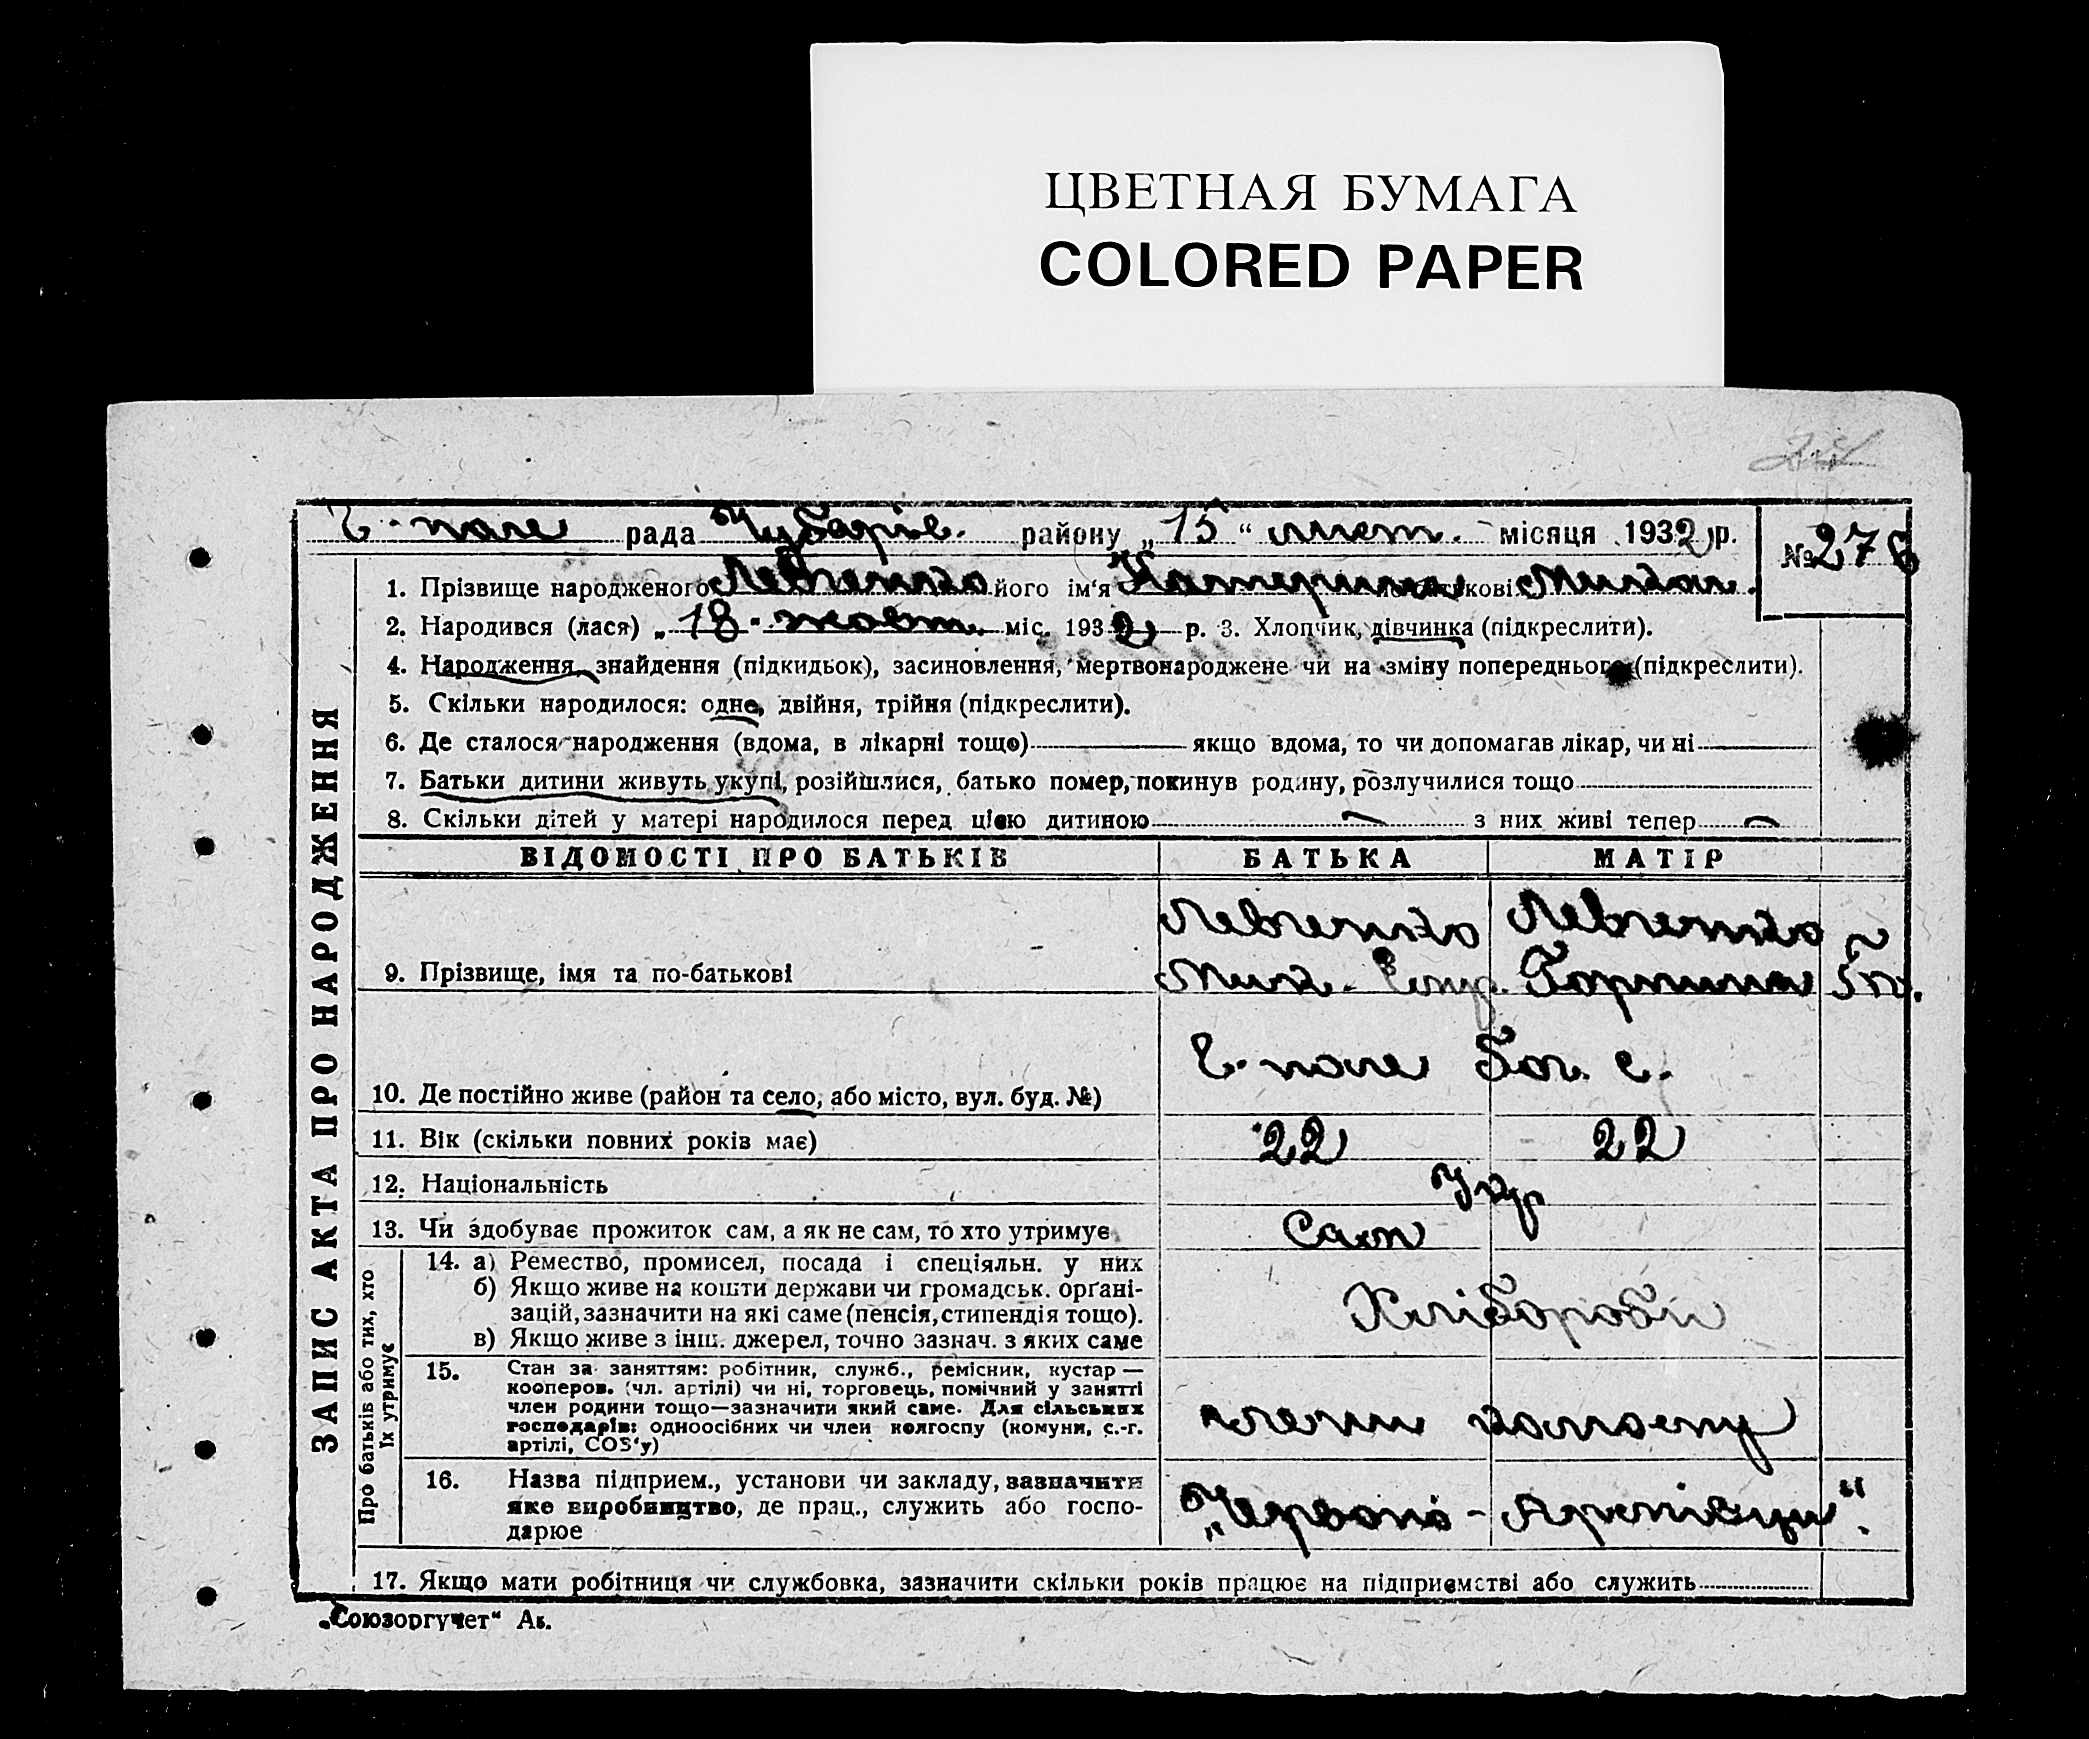 ЦВЕТНАЯ БУМАГА
COLORED PAPER
поле рада Чубарів. району „15“ лист. місяця 1932 р. № 276
1. Прізвище народженого Левченко його ім‘я Катерина по батькові Михай.
2. Народився (лася) „18“ жовт. міс. 1932 р. 3. Хлопчик, дівчинка (підкреслити).
4. Народження, знайдення (підкидьок), засиновлення, мертвонароджене чи на зміну попереднього (підкреслити).
5. Скільки народилося: одне, двійня, трійня (підкреслити).
6. Де сталося народження (вдома, в лікарні тощо) якщо вдома, то чи допомагав лікар, чи ні
7. Батьки дитини живуть укупі, розійшлися, батько помер, покинув родину, розлучилися тощо
8. Скільки дітей у матері народилося перед цією дитиною – з них живі тепер –
ЗАПИС АКТА ПРО НАРОДЖЕННЯ
ВІДОМОСТІ ПРО БАТЬКІВ БАТЬКА МАТІР
Левченко Левченко
9. Прізвище, імя та по-батькові Мих. Горпина
поле
10. Де постійно живе (район та село, або місто, вул. буд. №)
11. Вік (скільки повних років має) 22 22
12. Національність Укр
13. Чи здобуває прожиток сам, а як не сам, то хто утримує Сам
Про батьків або тих, хто
їх утримує
14. а) Ремество, промисел, посада і спеціяльн. у них
б) Якщо живе на кошти держави чи громадськ. орґані-
зацій, зазначити на які саме (пенсія, стипендія тощо).
в) Якщо живе з інш. джерел, точно зазнач. з яких саме
Хлібороби
15. Стан за заняттям: робітник, служб., ремісник, кустар —
кооперов. (чл. артілі) чи ні, торговець, помічний у занятті
член родини тощо—зазначити який саме. Для сільських
господарів: одноосібних чи член колгоспу (комуни, с.-г.
артілі, СОЗ‘у)
члени колгоспу
16. Назва підприєм., установи чи закладу, зазначити
яке виробництво, де прац., служить або госпо-
дарює
„Червоні - Армійци“.
17. Якщо мати робітниця чи службовка, зазначити скільки років працює на підприємстві або служить
„Союзоргучет“ Ак.